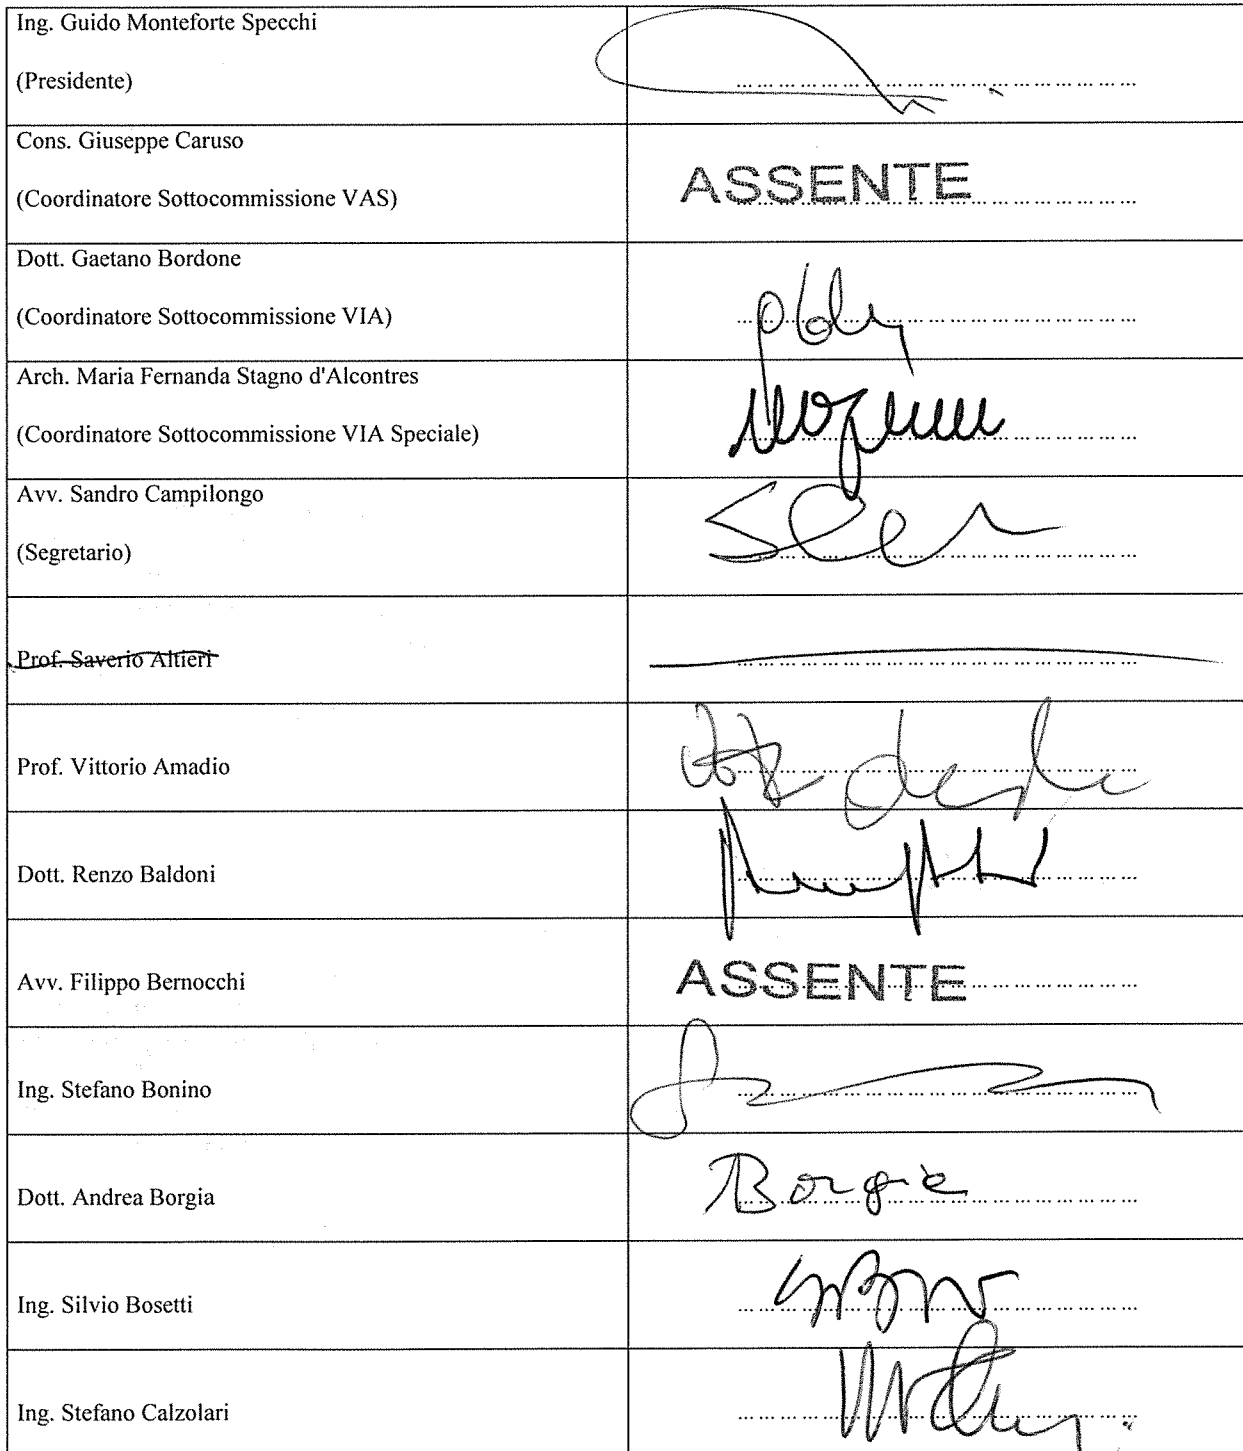 Ing. Guido Monteforte Specchi
(Presidente)
Cons. Giuseppe Caruso
(Coordinatore Sottocommissione VAS)
ASSENTE
Dott. Gaetano Bordone
(Coordinatore Sottocommissione VIA)
Arch. Maria Fernanda Stagno d'Alcontres
(Coordinatore Sottocommissione VIA Speciale)
Avv. Sandro Campilongo
(Segretario)
Prof. Saverio Altieri
Prof. Vittorio Amadio
Dott. Renzo Baldoni
Avv. Filippo Bernocchi
ASSENTE
Ing. Stefano Bonino
Dott. Andrea Borgia
Borgia
Ing. Silvio Bosetti
Ing. Stefano Calzolari